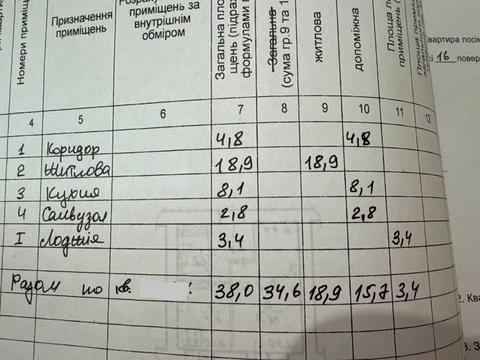 Номери приміщень
Призначення приміщень
приміщень за внутрішнім обміром
Загальна
формулами
Загальна
(сума гр.9 та 1
житлова
допоміжна
Площа
приміщень
квартира
16 повер
4 5 6 7 8 9 10 11 12
1 Коридор 4,8 4,8
2 Житлова 18,9 18,9
3 Кухня 8,1 8,1
4 Санвузол 2,8 2,8
I Лоджія 3,4 3,4
Разом по кв. : 38,0 34,6 18,9 15,7 3,4
2. Ква
3. З